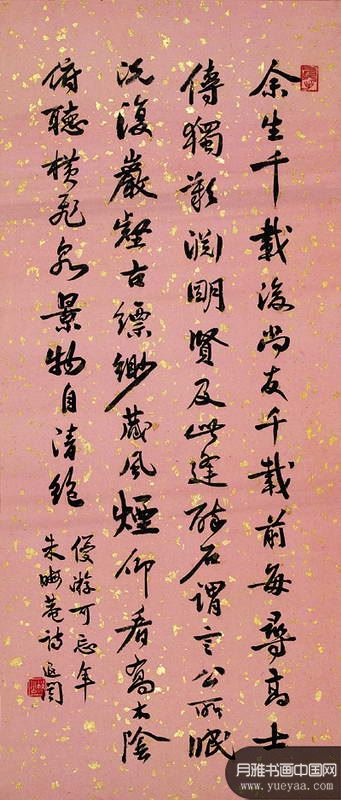 余生千載後尚友千載前每尋高士
傳獨歎淵明賢及此逢醉石謂言公所眠
況復巖壑古縹緲藏風煙仰看高木陰
俯聽橫飛泉景物自清絕
優游可忘年
朱晦菴詩 延闓
月雅书画中国网
www.yueyaa.com